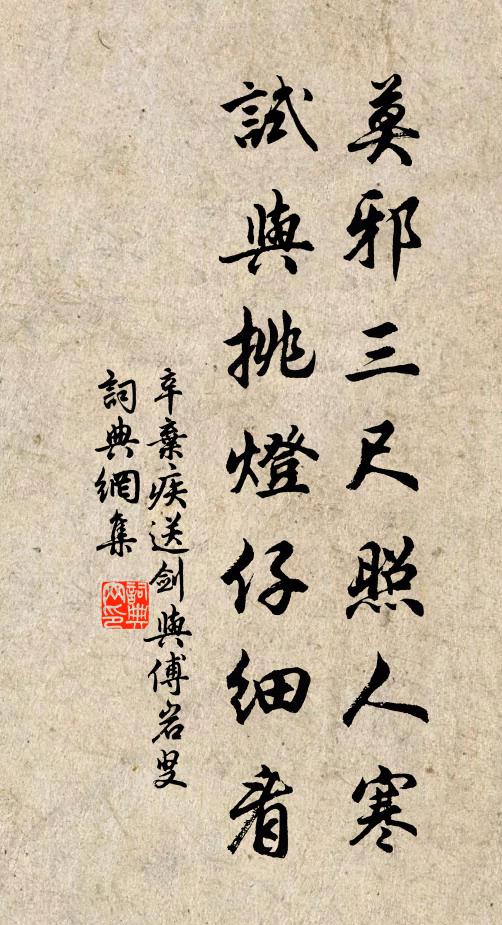 莫邪三尺照人寒
試與挑燈仔細看
辛棄疾送劍與傅岩叟
詞典網集
詞典网印